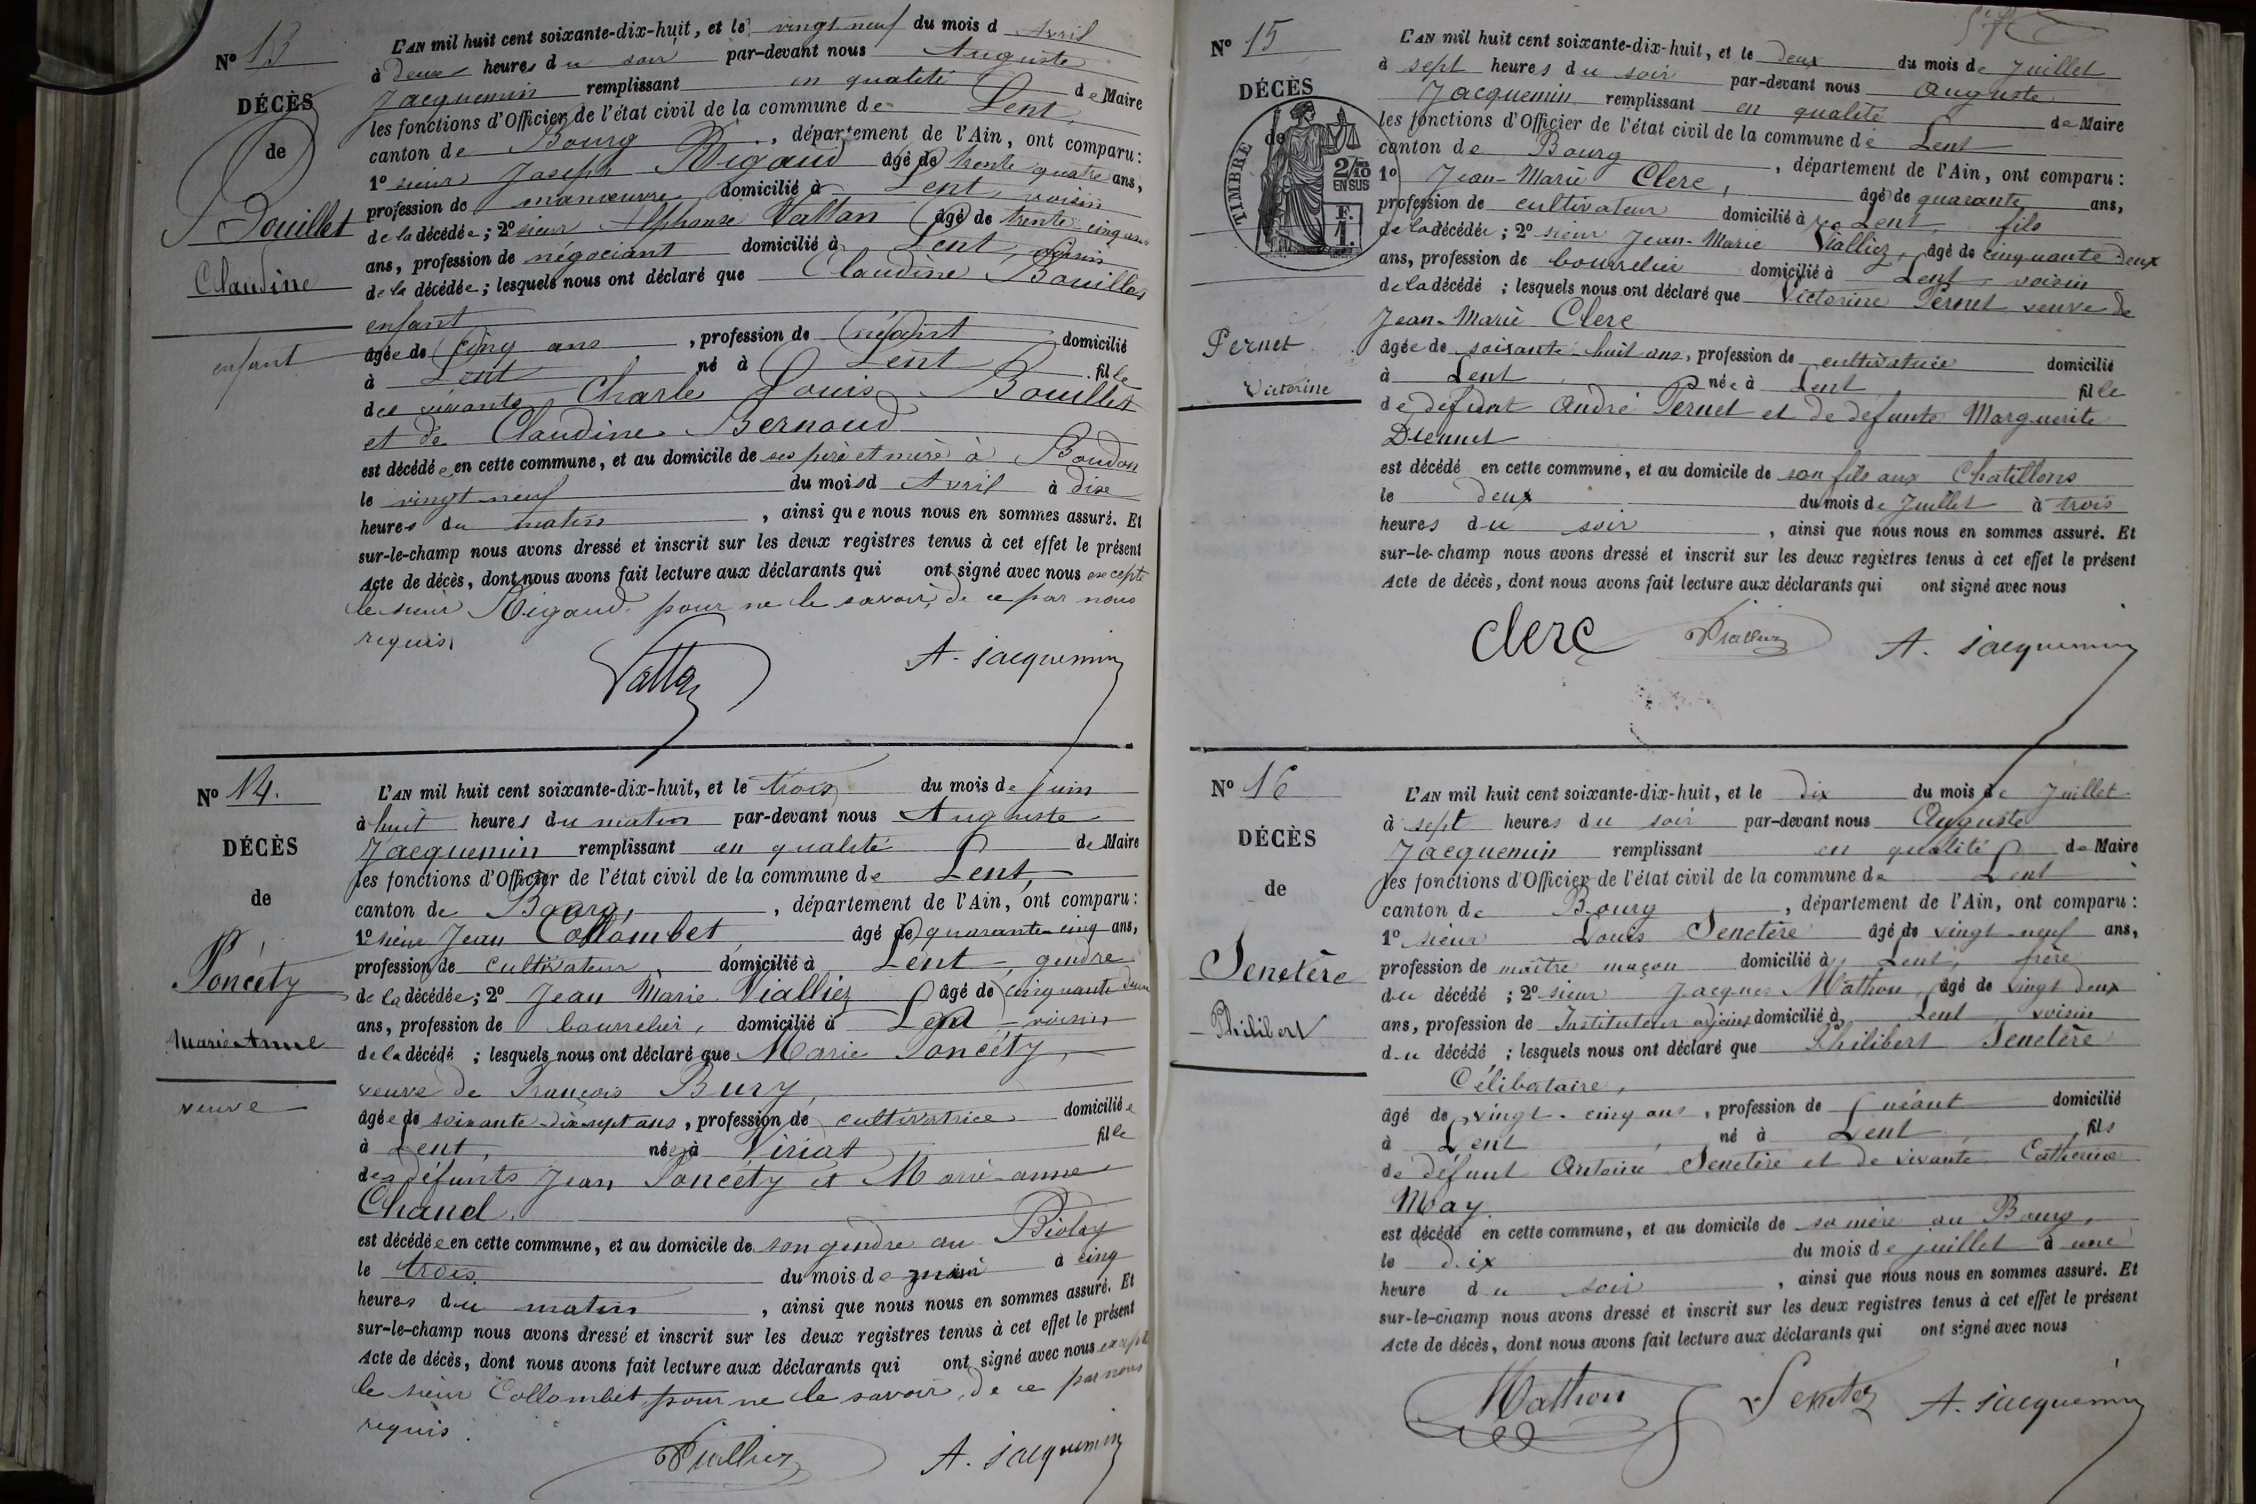 N° 13
DÉCÈS
de
Bouillet
Claudine
enfant
L'AN mil huit cent soixante-dix-huit, et le vingt neuf du mois d Avril
à deux heures du soir par-devant nous Auguste
Jacquemin remplissant en qualité de Maire
les fonctions d'Officier de l'état civil de la commune de Lent,
canton de Bourg, département de l'Ain, ont comparu:
1° sieur Joseph Rigaud âgé de trente quatre ans,
profession de manœuvre domicilié à Lent, voisin
de la décédée; 2° sieur Alphonse Vattan âgé de trente cinq ans
ans, profession de négociant domicilié à Lent, voisin
de la décédée; lesquels nous ont déclaré que Claudine Bouillet
enfant
âgée de cinq ans, profession de néant domicilié
à Lent né à Lent fille
des vivants Charle Louis Bouillet
et de Claudine Bernoud
est décédée en cette commune, et au domicile de ses père et mère à Boudon
le vingt neuf du mois d Avril à dixe
heures du matin, ainsi que nous nous en sommes assuré. Et
sur-le-champ nous avons dressé et inscrit sur les deux registres tenus à cet effet le présent
Acte de décès, dont nous avons fait lecture aux déclarants qui ont signé avec nous excepté
le sieur Rigaud pour ne le savoir, de ce par nous
requis.
Vattan A. Jacquemin
N° 14.
DÉCÈS
de
Poncéty
Marie Anne
veuve
L'AN mil huit cent soixante-dix-huit, et le trois du mois de juin
à huit heures du matin par-devant nous Auguste
Jacquemin remplissant en qualité de Maire
les fonctions d'Officier de l'état civil de la commune de Lent,
canton de Bourg, département de l'Ain, ont comparu:
1° sieur Jean Collombet âgé de quarante-cinq ans,
profession de cultivateur domicilié à Lent, gendre
de la décédée; 2° Jean Marie Vialliez âgé de cinquante deux
ans, profession de bourrelier, domicilié à Lent voisin
de la décédé ; lesquels nous ont déclaré que Marie Poncéty,
veuve de François Bury,
âgée de soixante-dix-sept ans, profession de cultivatrice domiciliée
à Lent, née à Viriat fille
des défunts Jean Poncéty et Marie-anne
Chanel.
est décédée en cette commune, et au domicile de son gendre au Biolay
le trois du mois de juin à cinq
heures du matin, ainsi que nous nous en sommes assuré. Et
sur-le-champ nous avons dressé et inscrit sur les deux registres tenus à cet effet le présent
Acte de décès, dont nous avons fait lecture aux déclarants qui ont signé avec nous except
le sieur Collombet pour ne le savoir, de ce par nous
requis.
Vialliez A. Jacquemin
N° 15
DÉCÈS
de
TIMBRE
2/10
EN SUS
F.
1.
Pernet
Victorine
L'AN mil huit cent soixante-dix-huit, et le deux du mois de Juillet
à sept heures du soir par-devant nous Auguste
Jacquemin remplissant en qualité de Maire
les fonctions d'Officier de l'état civil de la commune de Lent
canton de Bourg, département de l'Ain, ont comparu:
1° Jean-Marie Clerc, âgé de quarante ans,
profession de cultivateur domicilié à Lent, fils
de la décédée; 2° sieur Jean-Marie Vialliez, âgé de cinquante deux
ans, profession de bourrelier domicilié à Lent, voisin
de la décédé ; lesquels nous ont déclaré que Victorine Pernet veuve de
Jean-Marie Clerc
âgée de soixante-huit ans, profession de cultivatrice domicilié
à Lent née à Lent fille
de défunt André Pernet et de défunte Marguerite
est décédé en cette commune, et au domicile de son fils aux Chatillons
le deux du mois de Juillet à trois
heures du soir, ainsi que nous nous en sommes assuré. Et
sur-le-champ nous avons dressé et inscrit sur les deux registres tenus à cet effet le présent
Acte de décès, dont nous avons fait lecture aux déclarants qui ont signé avec nous
Clerc Vialliez A. Jacquemin
N° 16
DÉCÈS
de
Senetère
Philibert
L'AN mil huit cent soixante-dix-huit, et le dix du mois de Juillet
à sept heures du soir par-devant nous Auguste
Jacquemin remplissant en qualité de Maire
les fonctions d'Officier de l'état civil de la commune de Lent
canton de Bourg, département de l'Ain, ont comparu:
1° sieur Louis Senetère âgé de vingt-neuf ans,
profession de maître maçon domicilié à Lent, frère
du décédé ; 2° sieur Jacques Mathon, âgé de vingt deux
ans, profession de Instituteur adjoint domicilié à Lent voisin
du décédé ; lesquels nous ont déclaré que Philibert Senetère
Célibataire,
âgé de vingt-cinq ans, profession de néant domicilié
à Lent né à Lent, fils
de défunt Antoine Senetère et de vivante Catherine
May.
est décédé en cette commune, et au domicile de sa mère au Bourg,
le dix du mois de juillet à une
heure du soir, ainsi que nous nous en sommes assuré. Et
sur-le-champ nous avons dressé et inscrit sur les deux registres tenus à cet effet le présent
Acte de décès, dont nous avons fait lecture aux déclarants qui ont signé avec nous
Mathon Senetez A. Jacquemin